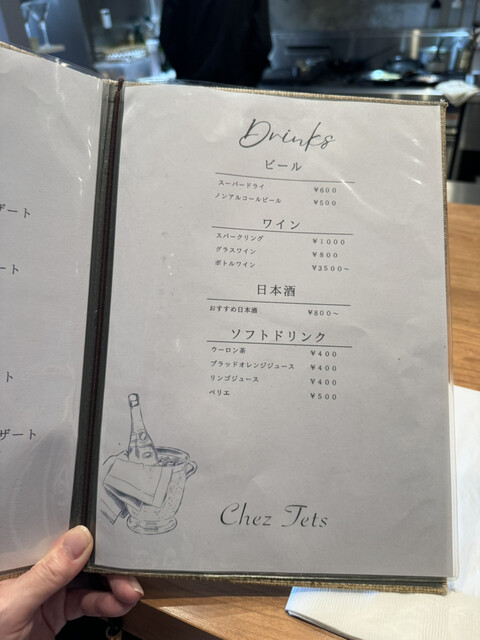 ザート
ート
ト
ザート
Drinks
ビール
スーパードライ ¥600
ノンアルコールビール ¥500
ワイン
スパークリング ¥1000
グラスワイン ¥800
ボトルワイン ¥3500~
日本酒
おすすめ日本酒 ¥800~
ソフトドリンク
ウーロン茶 ¥400
ブラッドオレンジジュース ¥400
リンゴジュース ¥400
ペリエ ¥500
Chez Tets